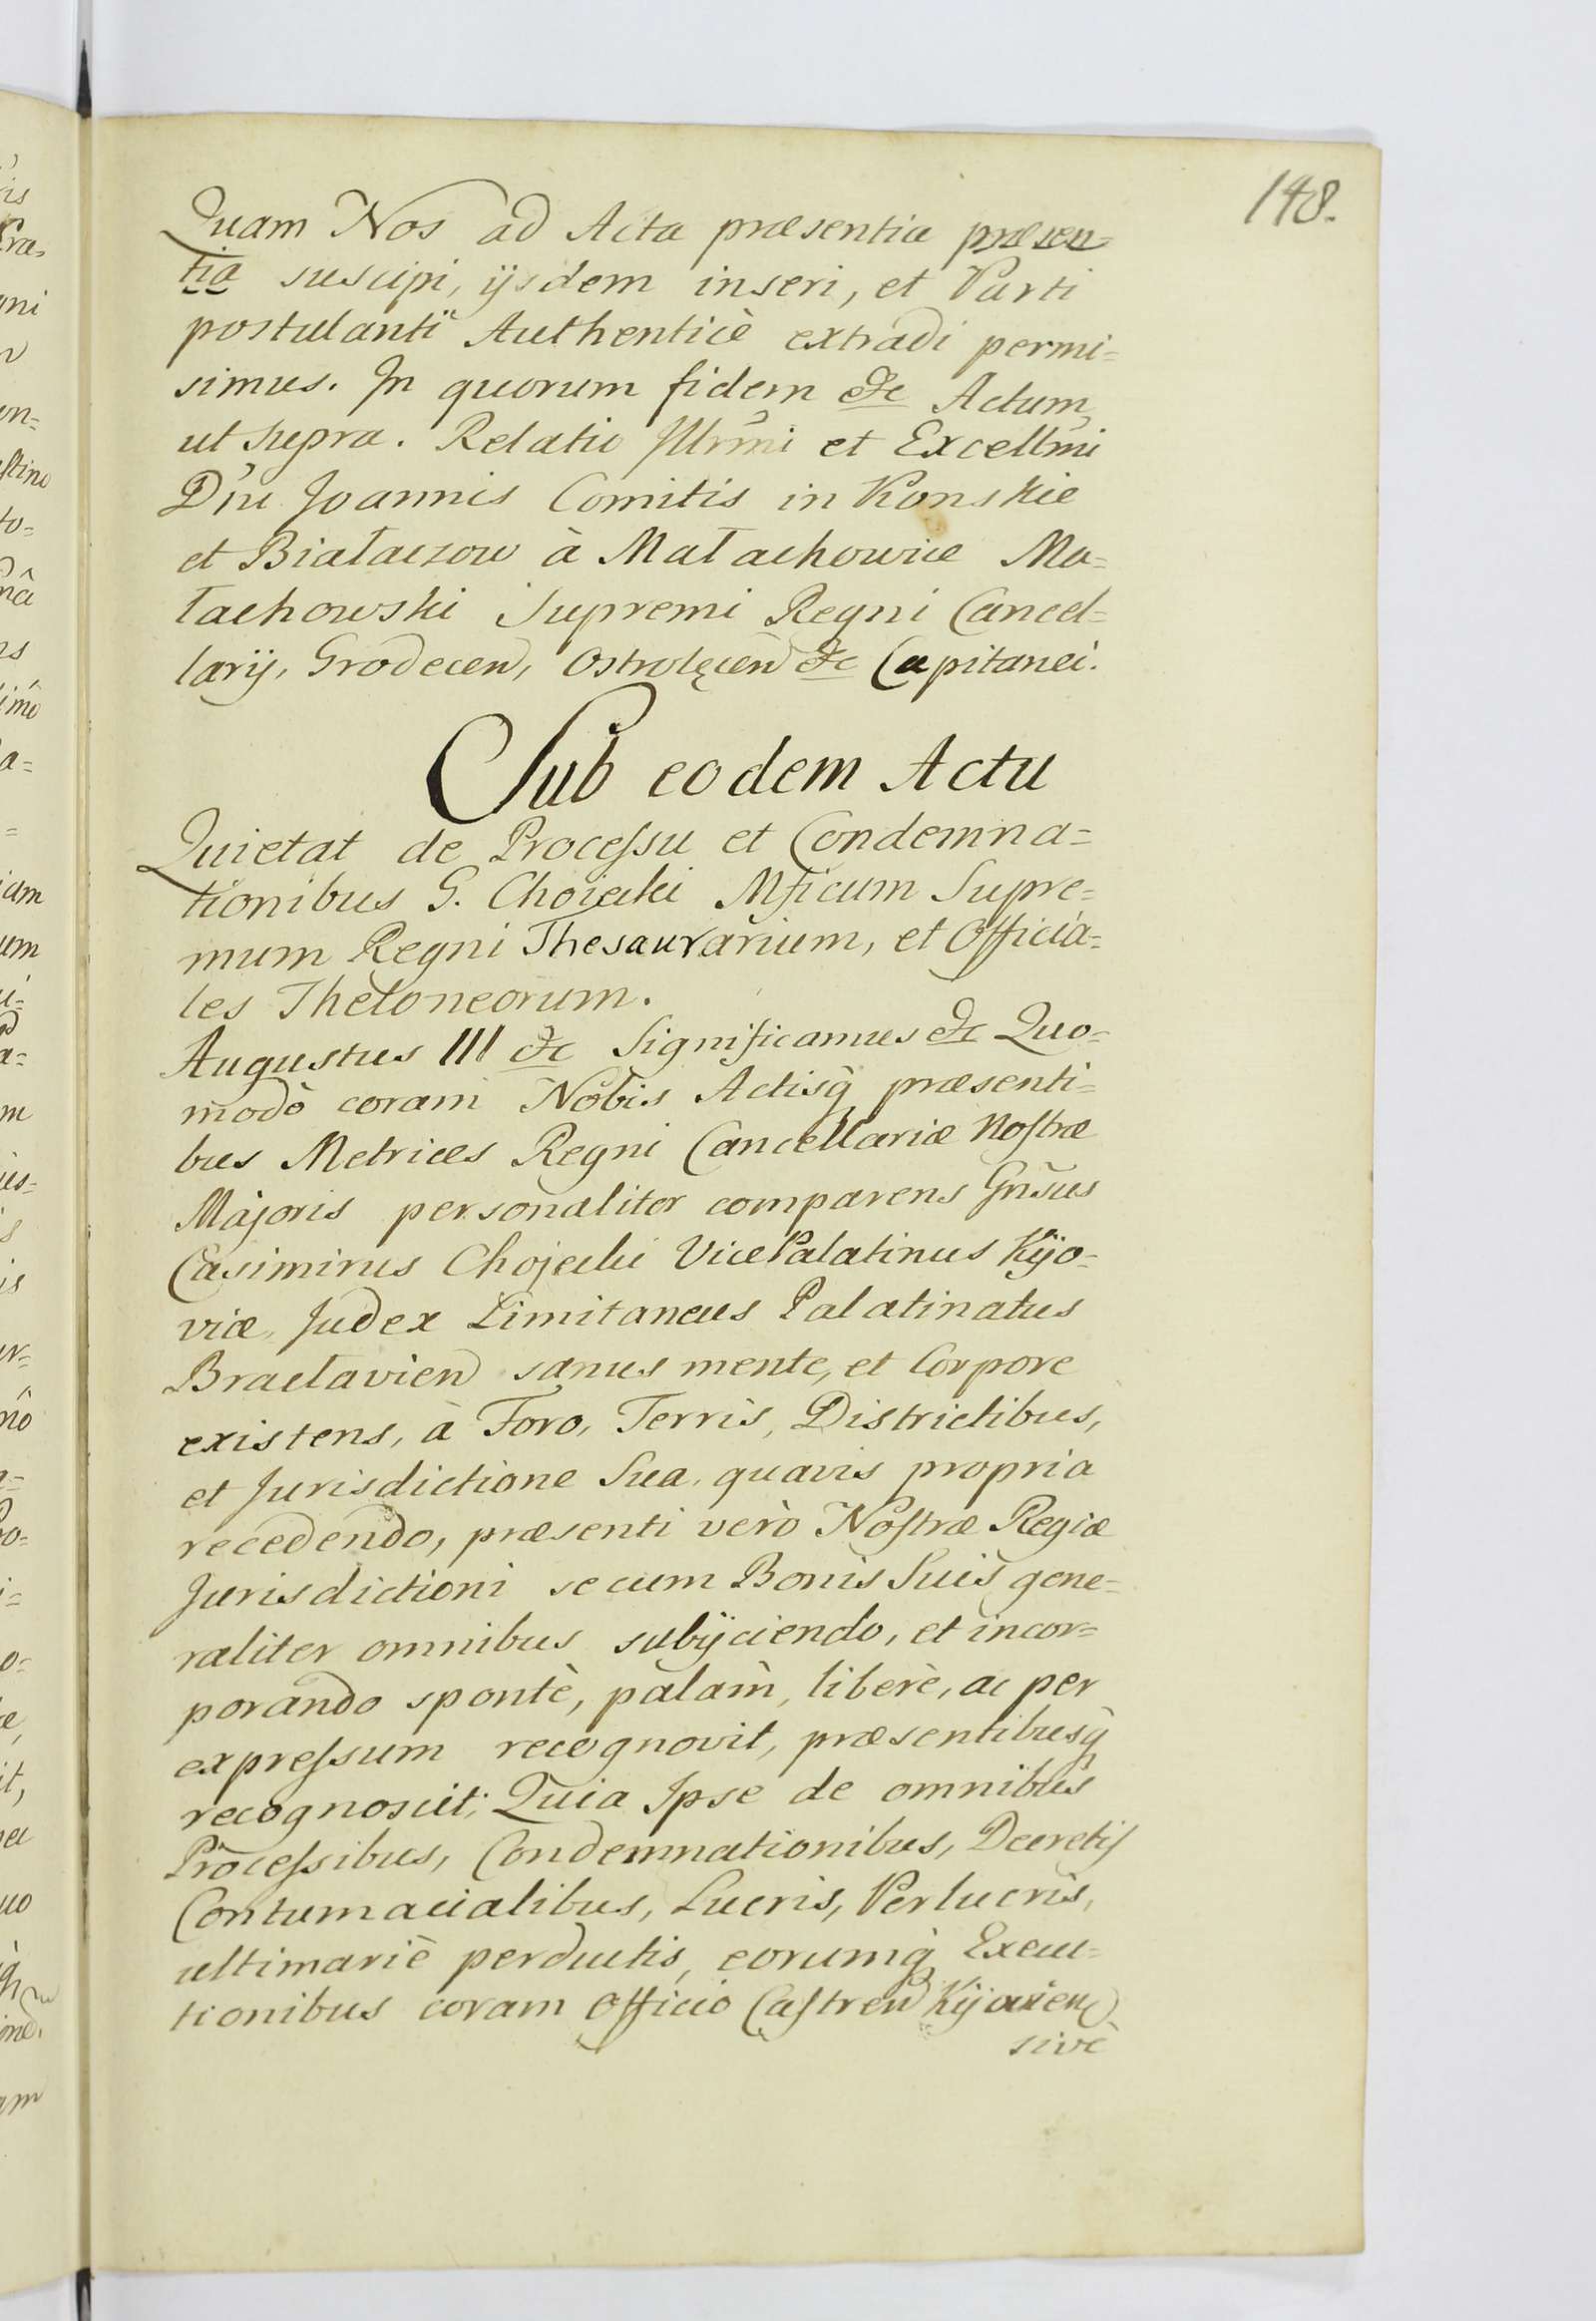 148.
Quam Nos ad Acta præsentia præsen=
tia suscipi, ijsdem inseri, et Parti
postulanti Authenticè extradi permi=
simus. In quorum fidem &c Actum
ut supra. Relatio Illrmi et Excellmi
Dni Joannis Comitis in Konskie
et Białaczow à Małachowice Ma=
łachowski Supremi Regni Cancel=
larij, Grodecen, Ostrolęcen &c Capitanei.
Sub eodem Actu
Quietat de Processu et Condemna=
tionibus G. Chojecki Mficum Supre=
mum Regni Thesaurarium, et Officia=
les Theloneorum.
Augustus III &c Significamus &c Quo=
modò coram Nobis Actisq̀ præsenti=
bus Metrices Regni Cancellariæ Nostræ
Majoris personaliter comparens Gnsus
Casimirus Chojecki VicePalatinus Kijo=
viæ, Judex Limitaneus Palatinatus
Braclavien sanus mente, et Corpore
existens, à Foro, Terris, Districtibus,
et Jurisdictione Sua quavis propria
recedendo, præsenti verò Nostræ Regiæ
Jurisdictioni se cum Bonis Suis gene=
raliter omnibus subijciendo, et incor=
porando spontè, palàm, liberè, ac per
expressum recognovit, præsentibusq̀
recognoscit; Quia Ipse de omnibus
Processibus, Condemnationibus, Decretis
Contumacialibus, Lucris, Perlucris,
ultimariè perductis, eorumq̀ Execu=
tionibus coram Officio Castren Kijovien
sivè